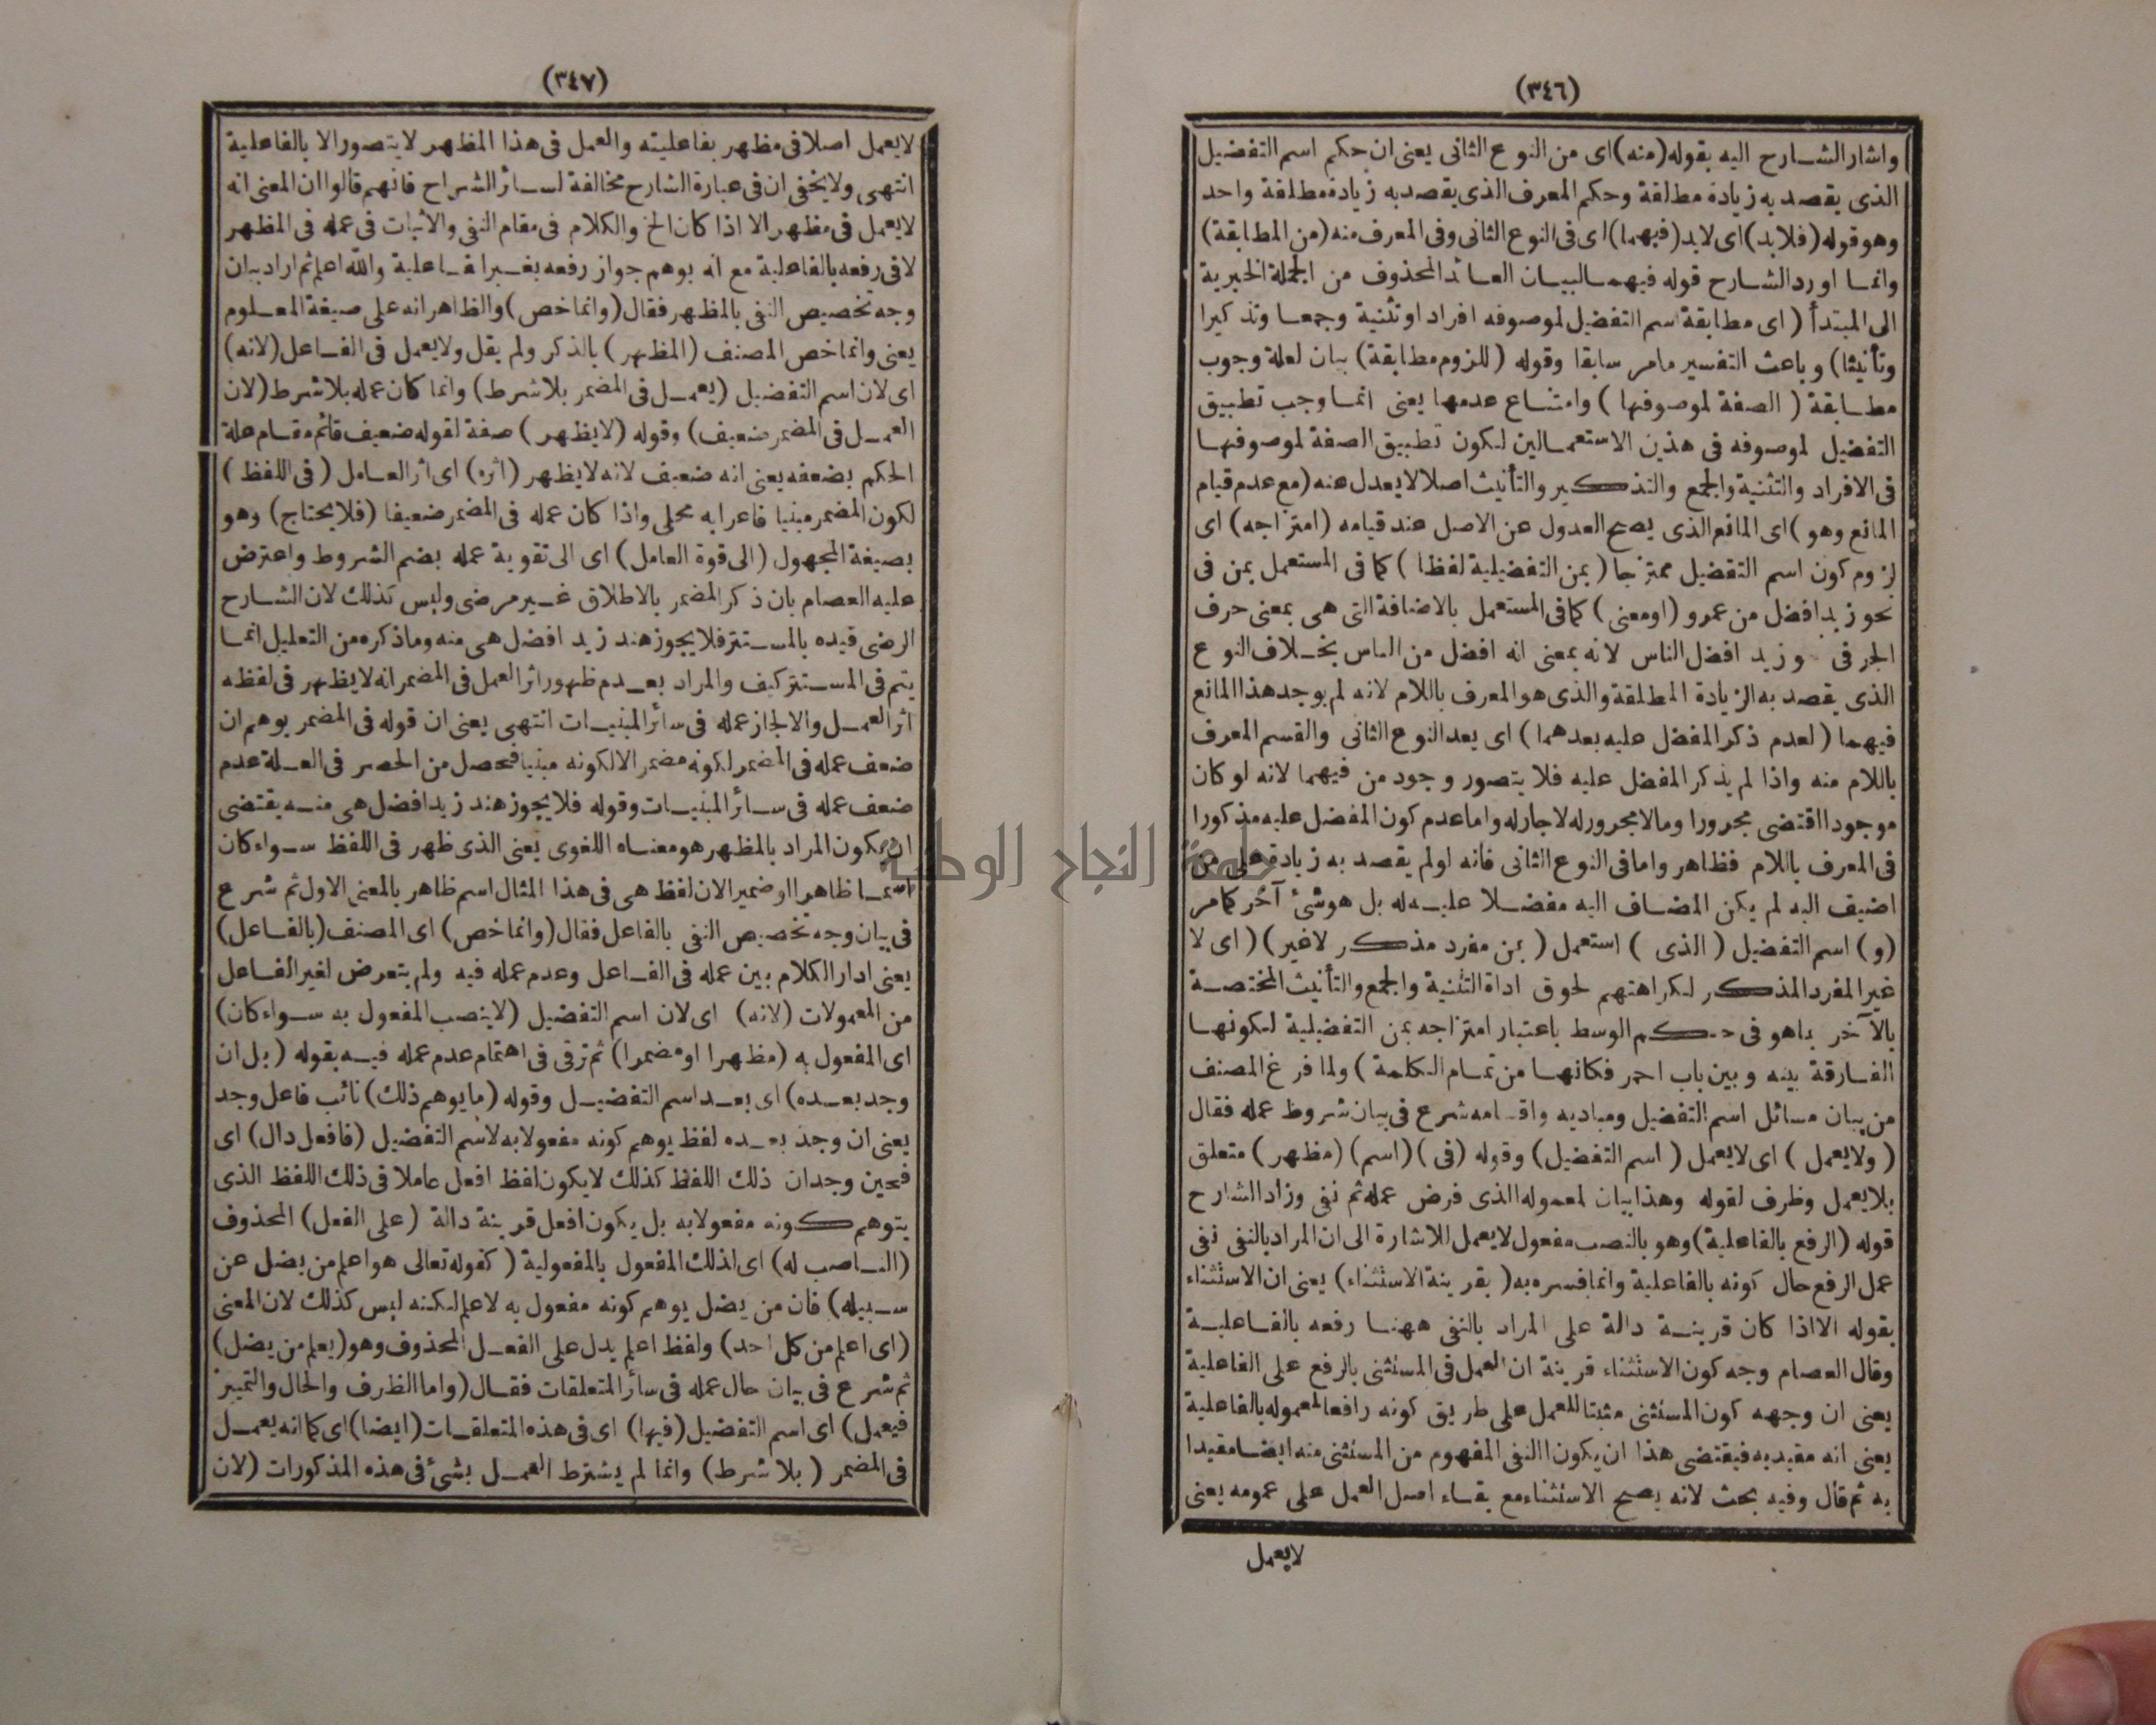 (٣٤٦)
واشار الشارح اليه بقوله (منه) اى من النوع الثانى يعنى ان حكم اسم التفضيل
الذى يقصد به زيادة مطلقة وحكم المعرف الذى يقصد به زيادة مطلقة واحد
وهو قوله (فلابد) اى لابد (فيهما) اى فى النوع الثانى وفى المعرف منه (من المطابقة)
وانما اورد الشارح قوله فيهما لبيان العائد المحذوف من الجملة الخبرية
الى المبتدأ (اى مطابقة اسم التفضيل لموصوفه افراد او تثنية وجمعا وتذكيرا
وتأنيثا) وباعث التفسير مامر سابقا وقوله (للزوم مطابقة) بيان لعلة وجوب
مطابقة (الصفة لموصوفها) وامتناع عدمها يعنى انما وجب تطبيق
التفضيل لموصوفه فى هذين الاستعمالين لكون تطبيق الصفة لموصوفها
فى الافراد والتثنية والجمع والتذكير والتأنيث اصلا لايعدل عنه (مع عدم قيام
المانع وهو) اى المانع الذى يصح العدول عن الاصل عند قيامه (امتزاجه) اى
لزوم كون اسم التفضيل ممتزجا (بمن التفضيلية لفظا) كما فى المستعمل بمن فى
نحو زيد افضل من عمرو (اومعنى) كما فى المستعمل بالاضافة التى هى بمعنى حرف
الجر فى وزيد افضل الناس لانه بمعنى انه افضل من الناس بخلاف النوع
الذى يقصد به الزيادة المطلقة والذى هو المعرف باللام لانه لم يوجد هذا المانع
فيهما (لعدم ذكر المفضل عليه بعدهما) اى بعد النوع الثانى والقسم المعرف
باللام منه واذا لم يذكر المفضل عليه فلا يتصور وجود من فيهما لانه لوكان
موجودا اقتضى مجرورا ومالامجرورله لاجارله واما عدم كون المفضل عليه مذكورا
فى المعرف باللام فظاهر واما فى النوع الثانى فانه اولم يقصد به زيادة على من
اضيف اليه لم يكن المضاف اليه مفضلا عليه له بل هوشئ آخر كمامر
(و) اسم التفضيل (الذى) استعمل (بمن مفرد مذكر لاغير) (اى لا
غير المفرد المذكر لكراهتهم لحوق اداة التثنية والجمع والتأنيث المختصة
بالآخر بماهو فى حكم الوسط باعتبار امتزاجه بمن التفضيلية لكونها
الفارقة بينه وبين باب احمر فكانها من تمام الكلمة) ولما فرغ المصنف
من بيان مسائل اسم التفضيل ومباديه واقسامه شرع فى بيان شروط عمله فقال
(ولايعمل) اى لايعمل (اسم التفضيل) وقوله (فى) (اسم) (مظهر) متعلق
بلايعمل وظرف لقوله وهذا بيان لمعموله الذى فرض عمله ثم نفى وزاد الشارح
قوله (الرفع بالفاعلية) وهو بالنصب مفعول لايعمل للاشارة الى ان المراد بالنفى نفى
عمل الرفع حال كونه بالفاعلية وانما فسره به (بقرينة الاستثناء) يعنى ان الاستثناء
بقوله الااذا كان قرينة دالة على المراد بالنفى ههنا رفعه بالفاعلية
وقال العصام وجه كون الاستثناء قرينة ان العمل فى المستثنى بالرفع على الفاعلية
يعنى ان وجهه كون المستثنى مثبتا للعمل على طريق كونه رافعا لمعموله بالفاعلية
يعنى انه مقيد به فيقتضى هذا ان يكون النفى المفهوم من المستثنى منه ايضا مقيدا
به ثم قال وفيه بحث لانه يصح الاستثناء مع بقاء اصل العمل على عمومه يعنى
لايعمل
(٣٤٧)
لايعمل اصلا فى مظهر بفاعليته والعمل فى هذا المظهر لايتصور الا بالفاعلية
انتهى ولايخفى ان فى عبارة الشارح مخالفة لسائر الشراح فانهم قالوا ان المعنى انه
لايعمل فى مظهر الا اذا كان الخ والكلام فى مقام النفى والاثبات فى عمله فى المظهر
لافى رفعه بالفاعلية مع انه يوهم جواز رفعه بغير الفاعلية والله اعلم ثم اراد بيان
وجه تخصيص النفى بالمظهر فقال (وانما خص) والظاهر انه على صيغة المعلوم
يعنى وانما خص المصنف (المظهر) بالذكر ولم يقل ولايعمل فى الفاعل (لانه)
اى لان اسم التفضيل (يعمل فى المضمر بلاشرط) وانما كان عمله بلاشرط (لان
العمل فى المضمر ضعيف) وقوله (لايظهر) صفة لقوله ضعيف قائم مقام علة
الحكم بضعفه يعنى انه ضعيف لانه لايظهر (اثره) اى اثر العامل (فى اللفظ)
لكون المضمر مبنيا فاعرابه محلى واذا كان عمله فى المضمر ضعيفا (فلايحتاج) وهو
بصيغة المجهول (الى قوة العامل) اى الى تقوية عمله بضم الشروط واعترض
عليه العصام بان ذكر المضمر بالاطلاق غير مرضى وليس كذلك لان الشارح
الرضى قيده بالمستتر فلايجوز هند زيد افضل هى منه وماذكره من التعليل انما
يتم فى المستتر كيف والمراد بعدم ظهور اثر العمل فى المضمر انه لايظهر فى لفظه
اثر العمل والالجاز عمله فى سائر المبنيات انتهى يعنى ان قوله فى المضمر يوهم ان
ضعف عمله فى المضمر لكونه مضمرا لالكونه مبنيا فحصل من الحصر فى العلة عدم
ضعف عمله فى سائر المبنيات وقوله فلايجوز هند زيد افضل هى منه يقتضى
ان يكون المراد بالمظهر هو معناه اللغوى يعنى الذى ظهر فى اللفظ سواء كان
اسما ظاهرا اوضميرا لان لفظ هى فى هذا المثال اسم ظاهر بالمعنى الاول ثم شرع
فى بيان وجه تخصيص النفى بالفاعل فقال (وانما خص) اى المصنف (بالفاعل)
يعنى ادار الكلام بين عمله فى الفاعل وعدم عمله فيه ولم يتعرض لغير الفاعل
من المعمولات (لانه) اى لان اسم التفضيل (لاينصب المفعول به سواء كان)
اى المفعول به (مظهرا اومضمرا) ثم ترقى فى اهتمام عدم عمله فيه بقوله (بل ان
وجد بعده) اى بعد اسم التفضيل وقوله (مايوهم ذلك) نائب فاعل وجد
يعنى ان وجد بعده لفظ يوهم كونه مفعولا به لاسم التفضيل (فافعل دال) اى
فحين وجدان ذلك اللفظ كذلك لايكون لفظ افعل عاملا فى ذلك اللفظ الذى
يتوهم كونه مفعولا به بل يكون افعل قرينة دالة (على الفعل) المحذوف
(الناصب له) اى لذلك المفعول بالمفعولية (كقوله تعالى هو اعلم من يضل عن
سبيله) فان من يضل يوهم كونه مفعول به لاعلم لكنه ليس كذلك لان المعنى
(اى اعلم من كل احد) ولفظ اعلم يدل على الفعل المحذوف وهو (يعلم من يضل)
ثم شرع فى بيان حال عمله فى سائر المتعلقات فقال (واما الظرف والحال والتمييز
فيعمل) اى اسم التفضيل (فيها) اى فى هذه المتعلقات (ايضا) اى كما انه يعمل
فى المضمر (بلا شرط) وانما لم يشترط العمل بشئ فى هذه المذكورات (لان
جامعة النجاح الوطنية